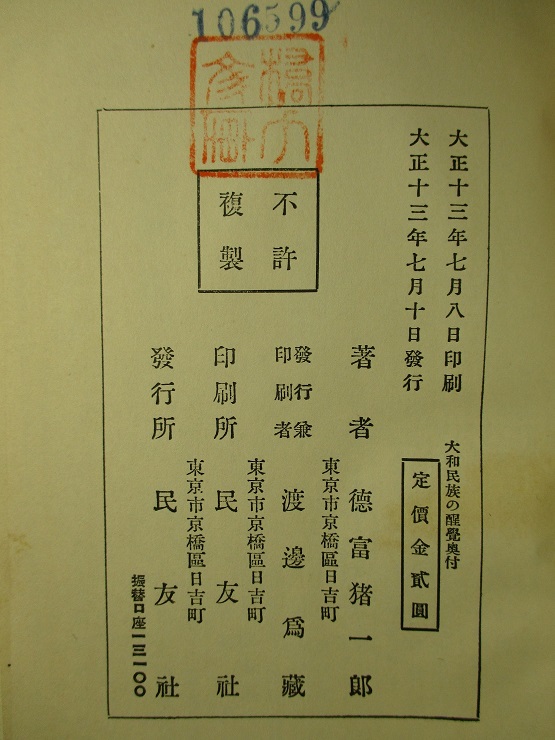 106599
大正十三年七月八日印刷
大正十三年七月十日發行
大和民族の醒覺奧付
定價金貳圓
不許
複製
著者 德富猪一郎
東京市京橋區日吉町
發行兼
印刷者 渡邊爲藏
東京市京橋區日吉町
印刷所 民友社
東京市京橋區日吉町
發行所 民友社
振替口座一三一〇〇